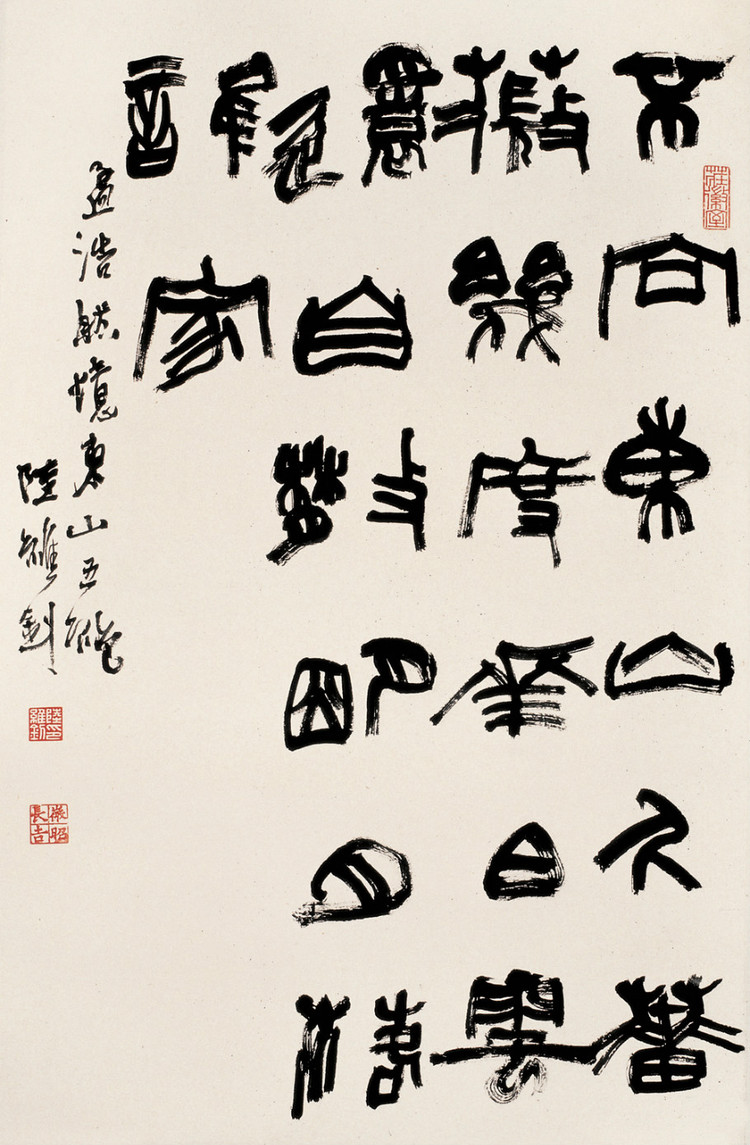 不向東山久薔
薇幾度華白雲
還自散明月落
誰家
孟浩然憶東山五絕
陸維釗
莊徽室
陸維釗印